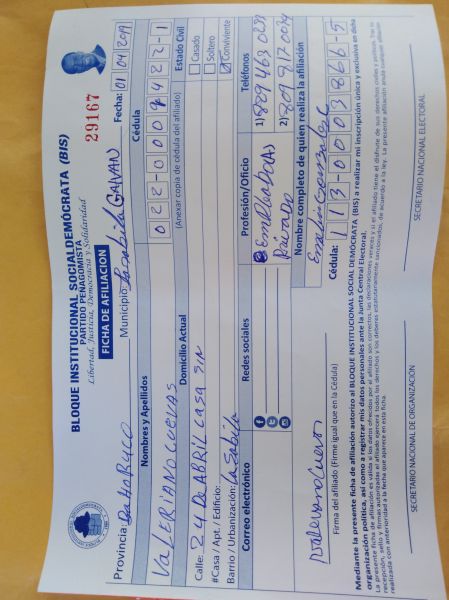 BLOQUE INSTITUCIONAL SOCIALDEMÓCRATA (BIS)
PARTIDO PEÑAGOMISTA
Libertad, Justicia, Democracia y Solidaridad
29167
FICHA DE AFILIACION
Provincia: BAHORUCO Municipio: GALVAN Fecha: 01 04 2019
Nombres y Apellidos Cédula
VALERIANO CUEVAS
(Anexar copia de cédula del afiliado)
Domicilio Actual Estado Civil
Calle: 24 DE ABRIL CASA S/N Casado
#Casa / Apt. / Edificio: Soltero
Barrio / Urbanización: LA Sabila Conviviente
Correo electrónico Redes sociales Profesión/Oficio Teléfonos
1) 809 463 0291
2) 809 817 0074
PRIVADO
Nombre completo de quien realiza la afiliación
Cédula: 113-0003866-5
Firma del afiliado (Firme igual que en la Cédula)
Mediante la presente ficha de afiliación autorizo al BLOQUE INSTITUCIONAL SOCIAL DEMOCRATA (BIS) a realizar mi inscripción única y exclusiva en dicha
organización política, así como a registrar mis datos personales ante la Junta Central Electoral.
SECRETARIO NACIONAL DE ORGANIZACIÓN SECRETARIO NACIONAL ELECTORAL